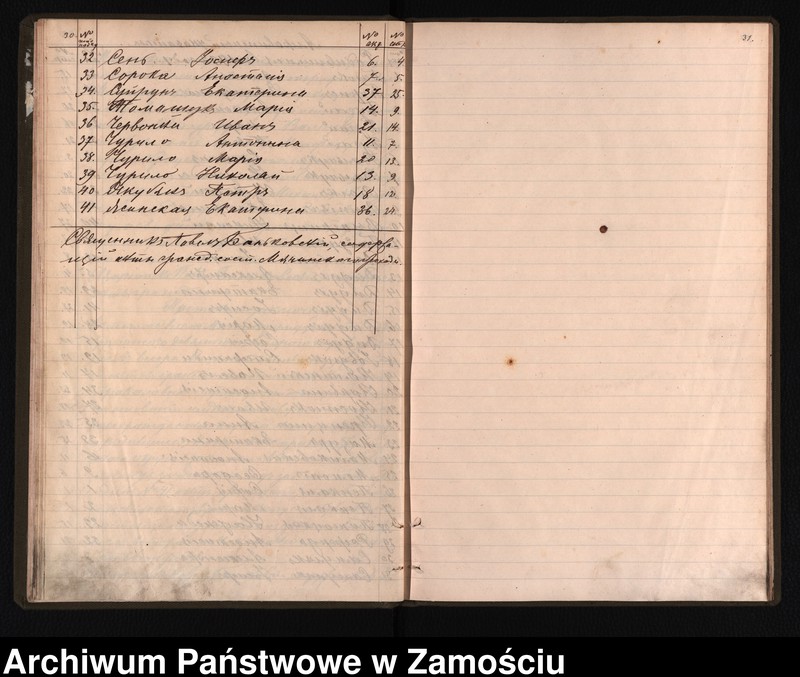 30.
31.
№ № акт. №
32 Сень Іосифъ 6. 4
33 Сорока Анастасія 7. 5.
34. Супрунъ Екатерина 37 25.
35. Томащукъ Марія 14. 9.
36 Червоный Иванъ 21. 14.
37 Чурило Антонина 11. 7.
38. Чурило Марія 20 13.
39 Чурило Николай 13. 9.
40 Якубыкъ Петръ 18 12.
41 Ясинская Екатерина 36. 24.
Священникъ Павелъ Баньковскій, содержа-
щій акты гражд. сост.
Archiwum Państwowe w Zamościu